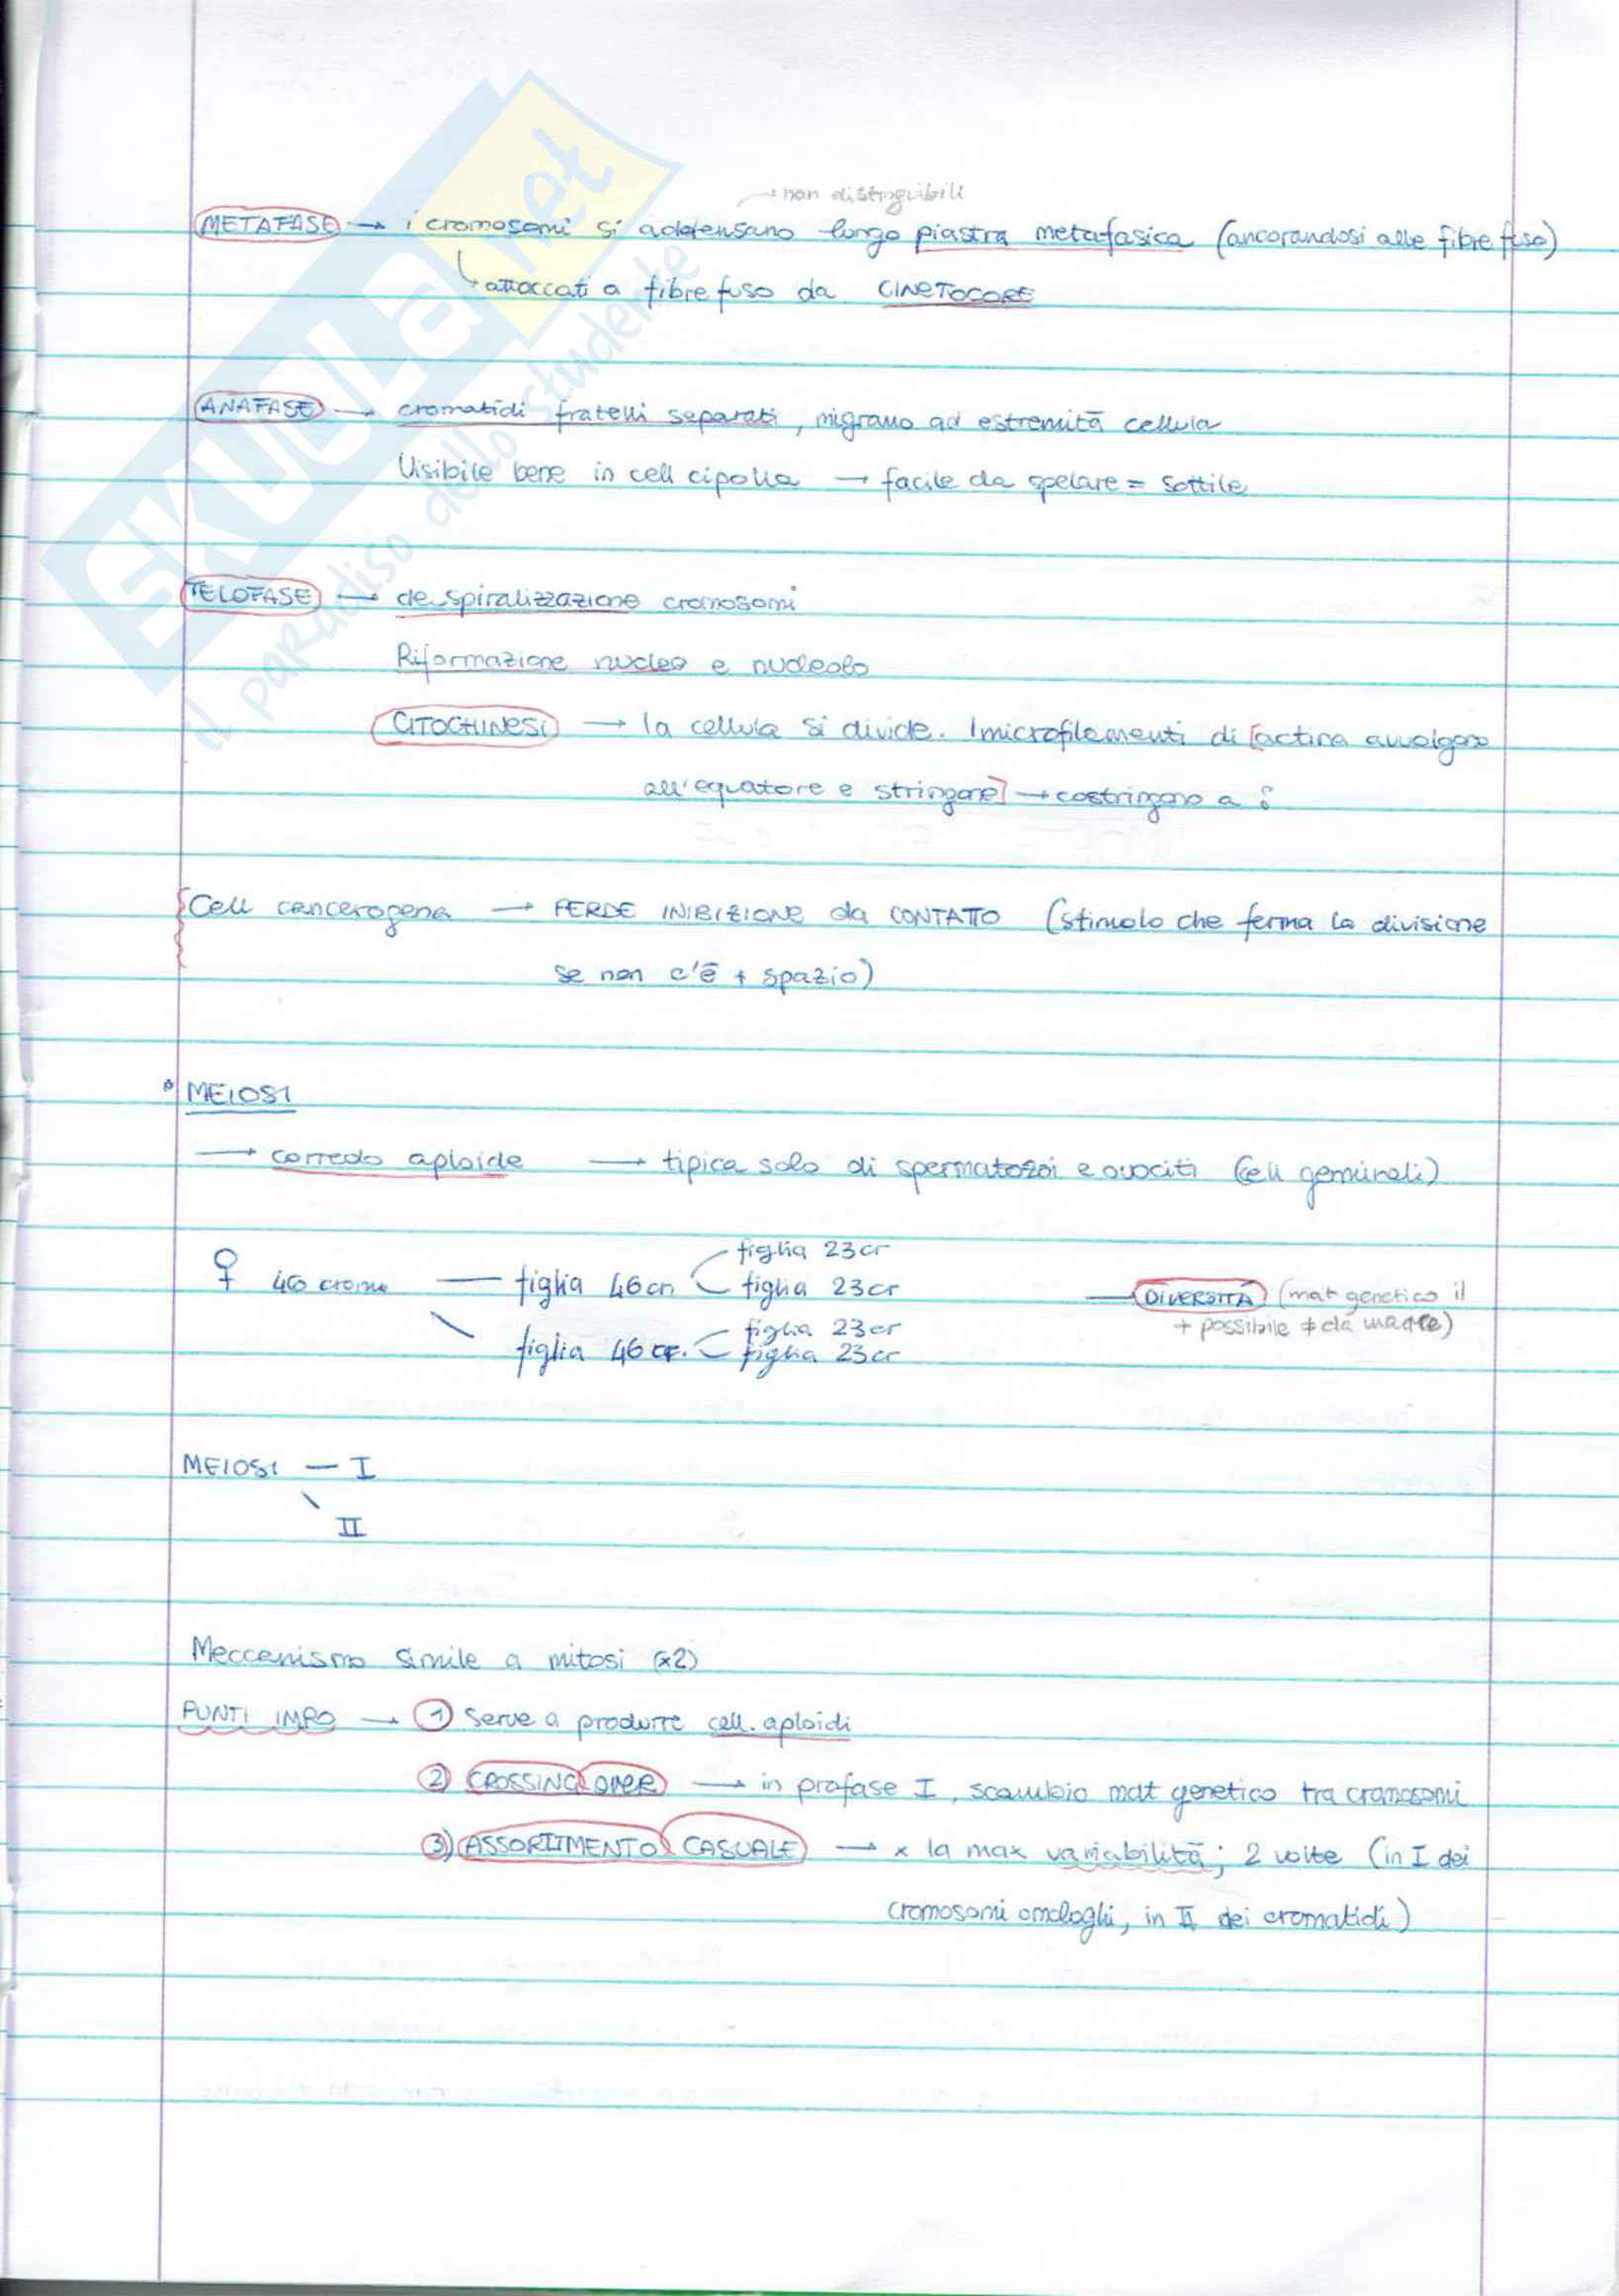 → non distinguibili
METAFASE → i cromosomi si addensano lungo piastra metafasica (ancorandosi alle fibre fuso)
attaccati a fibre fuso da CINETOCORE
ANAFASE → cromatidi fratelli separati, migrano ad estremità cellula
Visibile bene in cell cipolla → facile da spelare = sottile
TELOFASE → despiralizzazione cromosomi
Riformazione nucleo e nucleolo
CITOCHINESI → la cellula si divide. I microfilamenti di [actina avvolgono
all'equatore e stringono] → costringono a
Cell cancerogena → PERDE INIBIZIONE da CONTATTO (stimolo che ferma la divisione
se non c'è + spazio)
MEIOSI
→ corredo aploide → tipica solo di spermatozoi e ovociti (cell germinali)
figlia 23cr
♀ 46 cromo — figlia 46cr figlia 23cr — DIVERSITÀ (mat genetico il
figlia 23cr + possibile ≠ da madre)
figlia 46 cr. figlia 23cr
MEIOSI — I
II
Meccanismo simile a mitosi (x2)
PUNTI IMPO → 1 Serve a produrre cell. aploidi
2) CROSSING OVER → in profase I, scambio mat genetico tra cromosomi
3) ASSORTIMENTO CASUALE → x la max variabilità; 2 volte (in I dei
cromosomi omologhi, in II dei cromatidi)
SKUOLA.net
il paradiso dello studente